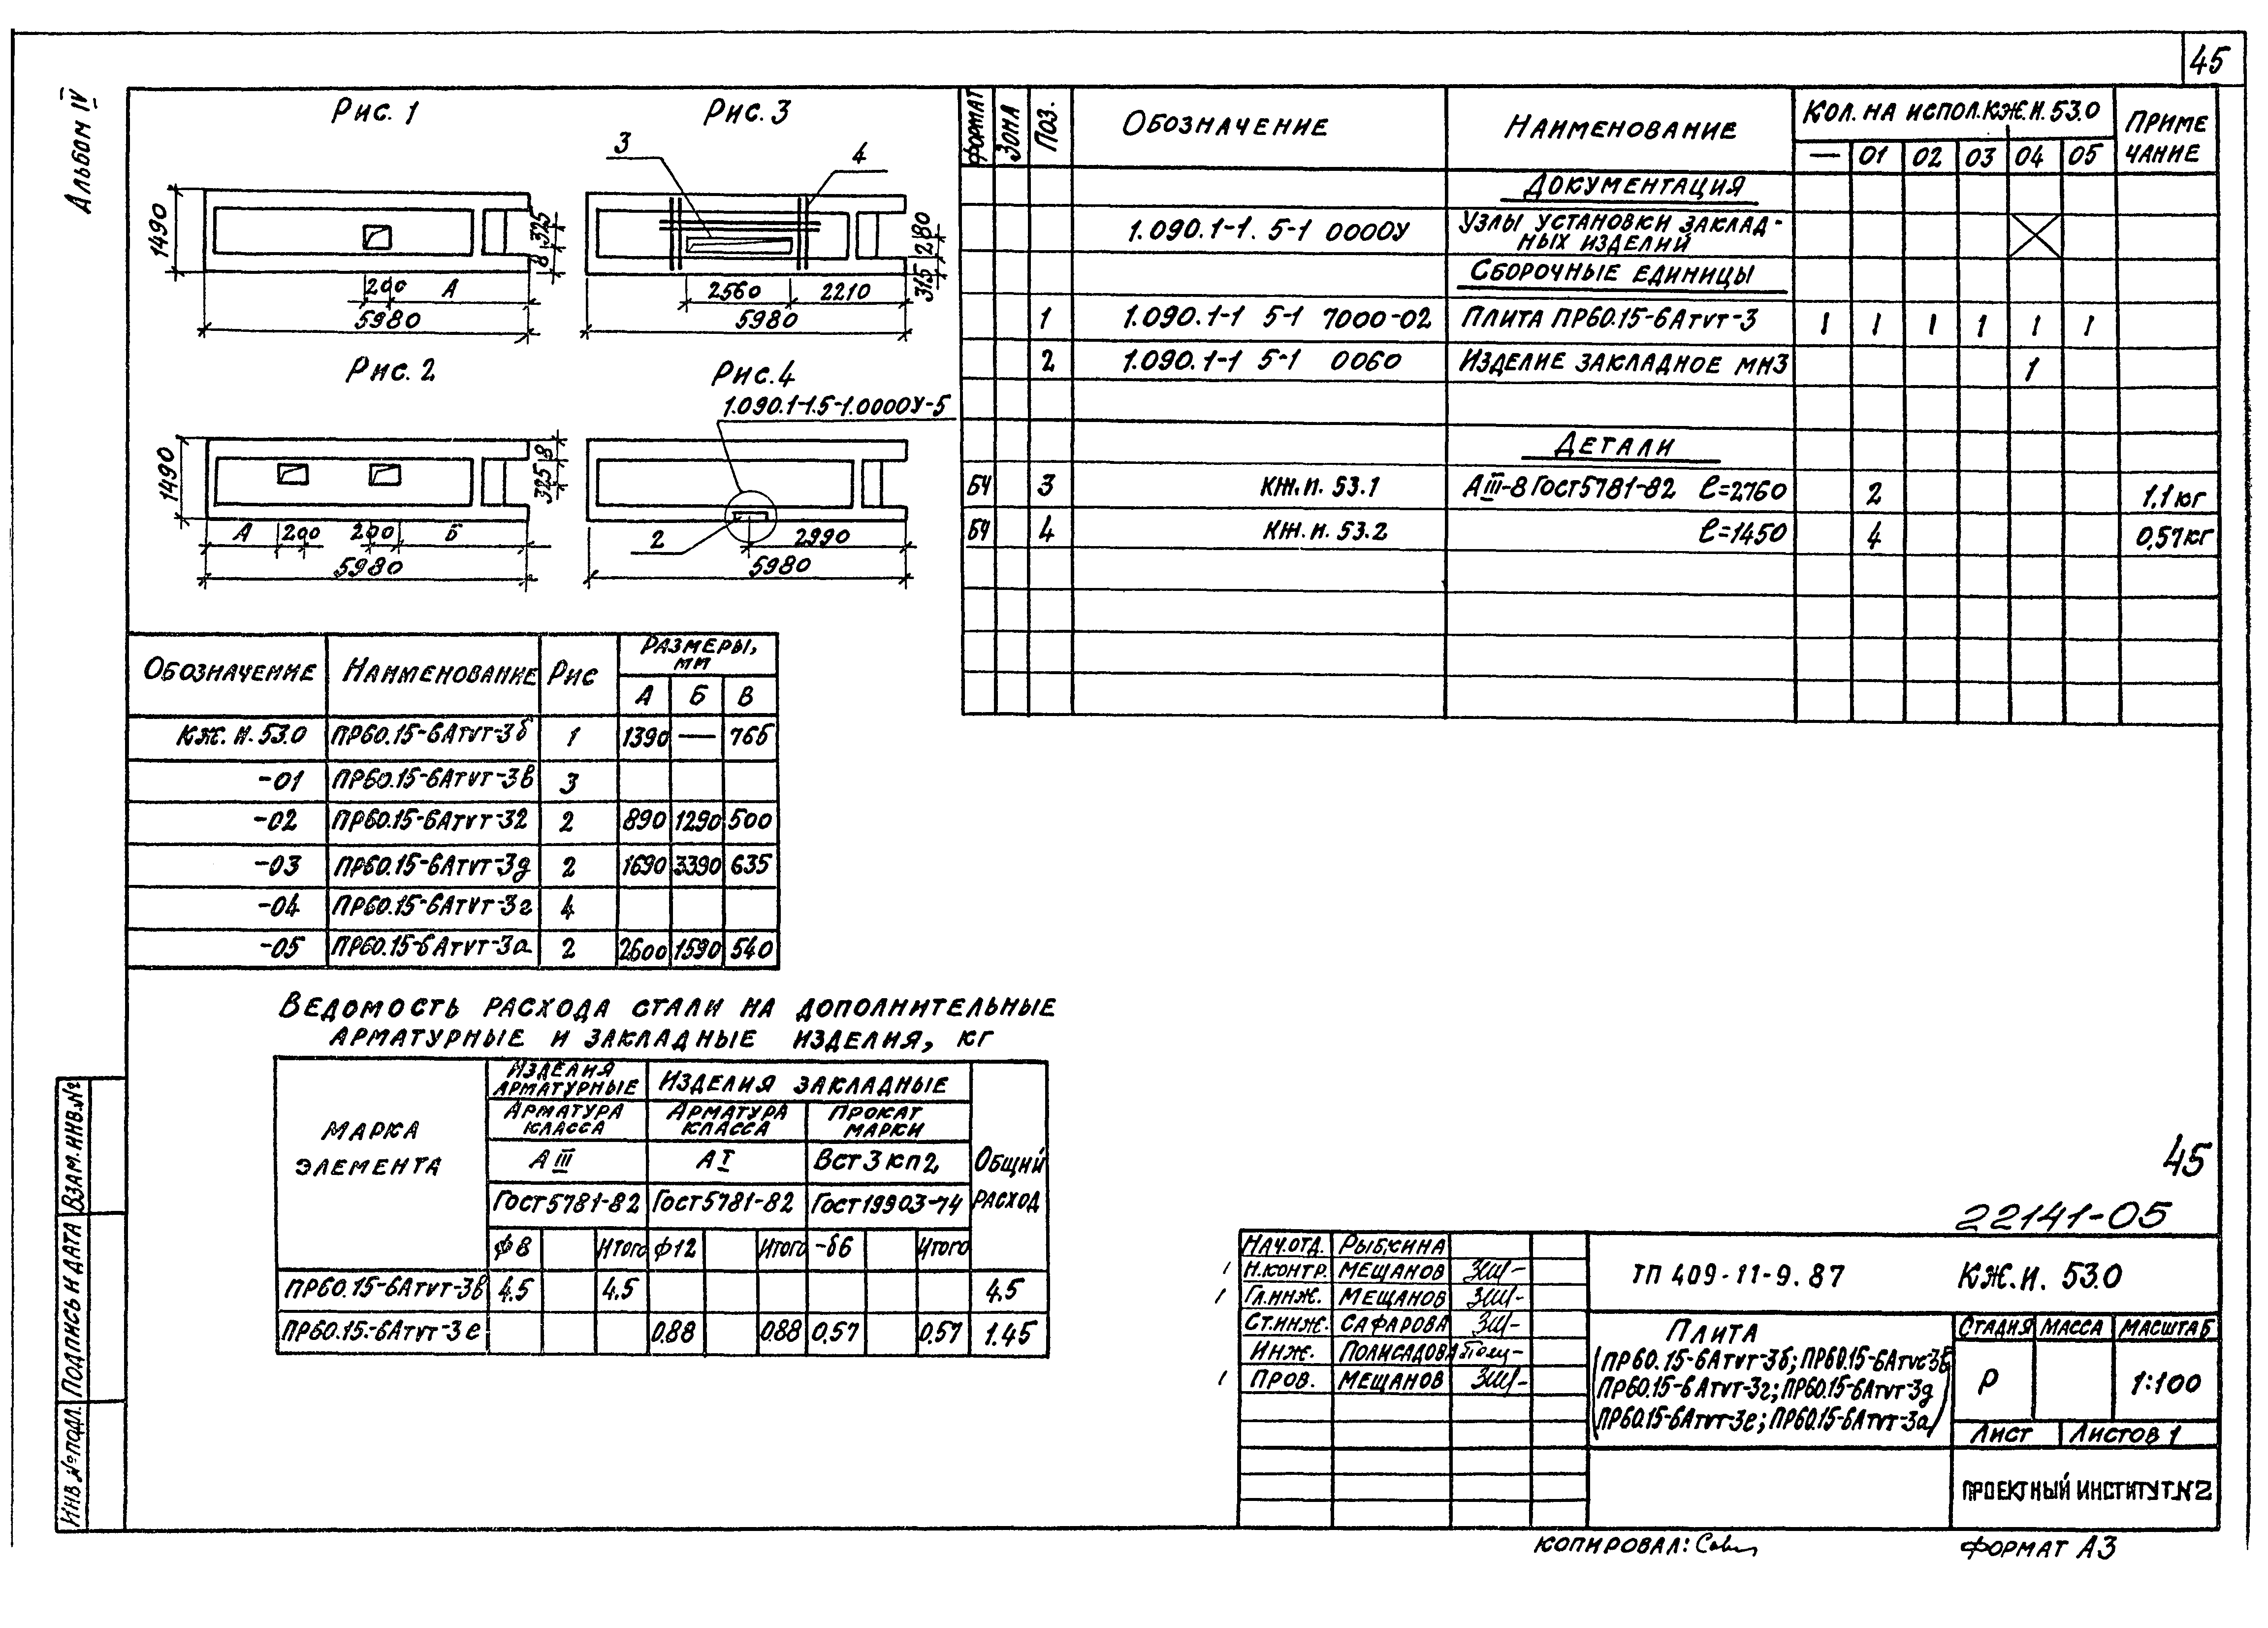 45
Альбом IV
Рис. 1
1490
8 325
200 А
5980
Рис. 3
3
4
2560 2210
5980
315 2180
Рис. 2
1490
325 8
А 200 200 Б
5980
Рис. 4
1.090.1-1.5-1.0000У-5
2
2990
5980
Формат Зона Поз. Обозначение Наименование Кол. на испол. КЖ.И. 53.0 Приме
— 01 02 03 04 05 чание
Документация
1.090.1-1. 5-1 0000У Узлы установки заклад-
ных изделий
Сборочные единицы
1 1.090.1-1 5-1 7000-02 Плита ПР60.15-6АтVт-3 1 1 1 1 1 1
2 1.090.1-1 5-1 0060 Изделие закладное МН3 1
Детали
БЧ 3 КЖ.И. 53.1 АIII-8 Гост 5781-82 ℓ=2760 2 1,1 кг
БЧ 4 КЖ.И. 53.2 ℓ=1450 4 0,57 кг
Обозначение Наименование Рис Размеры, мм
А Б В
КЖ.И. 53.0 ПР60.15-6АтVт-3б 1 1390 — 766
-01 ПР60.15-6АтVт-3в 3
-02 ПР60.15-6АтVт-32 2 890 1290 500
-03 ПР60.15-6АтVт-3д 2 1690 3390 635
-04 ПР60.15-6АтVт-3г 4
-05 ПР60.15-6АтVт-3а 2 2600 1590 540
Ведомость расхода стали на дополнительные
арматурные и закладные изделия, кг
Марка элемента
Изделия арматурные Изделия закладные Общий расход
Арматура класса Арматура класса Прокат марки
АIII АI Вст3кп2
Гост 5781-82 Гост 5781-82 Гост 19903-74
ф8 Итого ф12 Итого -δ6 Итого
ПР60.15-6АтVт-3в 4.5 4.5 4.5
ПР60.15-6АтVт-3е 0.88 0.88 0,57 0.57 1.45
45
22141-05
Нач.отд. Рыбкина
Н.контр. Мещанов
Гл.инж. Мещанов
Ст.инж. Сафарова
Инж. Полисадова
Пров. Мещанов
ТП 409-11-9.87 КЖ.И. 53.0
Плита
(ПР60.15-6АтVт-3б; ПР60.15-6АтVс-3в
ПР60.15-6АтVт-3г; ПР60.15-6АтVт-3д
ПР60.15-6АтVт-3е; ПР60.15-6АтVт-3а)
Стадия Масса Масштаб
Р 1:100
Лист Листов 1
Проектный институт №2
Инв. № подл. Подпись и дата Взам. инв. №
Копировал:
Формат А3